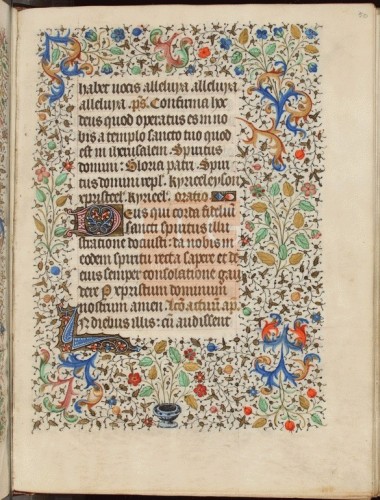 habet uocis alleluya alleluya
alleluya. ps. Confirma hoc
deus quod operatus es in no
bis a templo sancto tuo quod
est in iherusalem. Spiritus
domini: Gloria patri. Spiri
tus domini repl. kyrieeleyson
xpristeel. kyrieel. oratio
Deus qui corda fidelium
sancti spiritus illu
stratione docuisti: da nobis in
eodem spiritu recta sapere et de
eius semper consolatione gau
dere P xpristum dominum
nostrum amen. actuum
In diebus illis: cum audissent